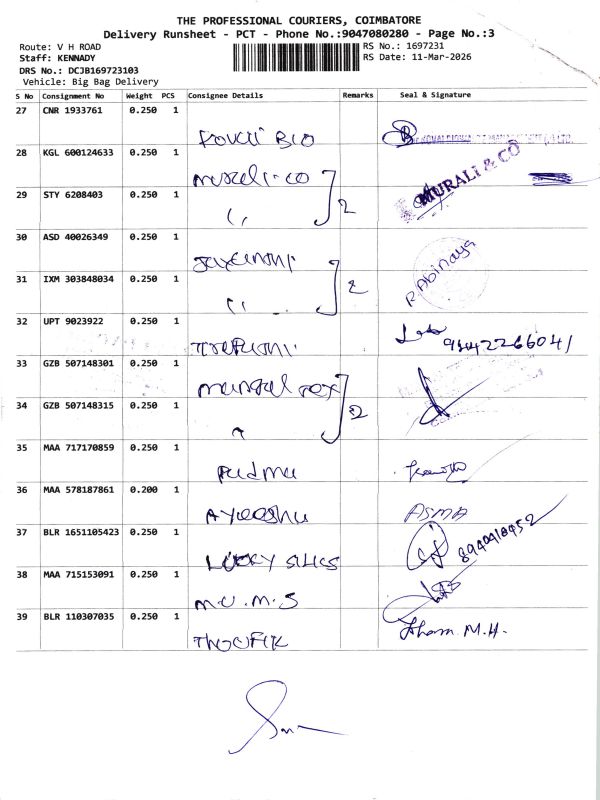 THE PROFESSIONAL COURIERS, COIMBATORE
Delivery Runsheet - PCT - Phone No.:9047080280 - Page No.:3
Route: V H ROAD
RS No.: 1697231
Staff: KENNADY
RS Date: 11-Mar-2026
DRS No.: DCJB169723103
Vehicle: Big Bag Delivery
S No Consignment No Weight PCS Consignee Details Remarks Seal & Signature
27 CNR 1933761 0.250 1
BIO
28 KGL 600124633 0.250 1
murali-co MURALI & CO
29 STY 6208403 0.250 1
2
30 ASD 40026349 0.250 1
R.Abinaya
31 IXM 303848034 0.250 1
2
32 UPT 9023922 0.250 1
33 GZB 507148301 0.250 1
34 GZB 507148315 0.250 1
2
35 MAA 717170859 0.250 1
Padma
36 MAA 578187861 0.200 1
Ayeesha ASMA
37 BLR 1651105423 0.250 1
LUCKY SILKS
38 MAA 715153091 0.250 1
M.U.M.S
39 BLR 110307035 0.250 1
THOUFIK M.H.